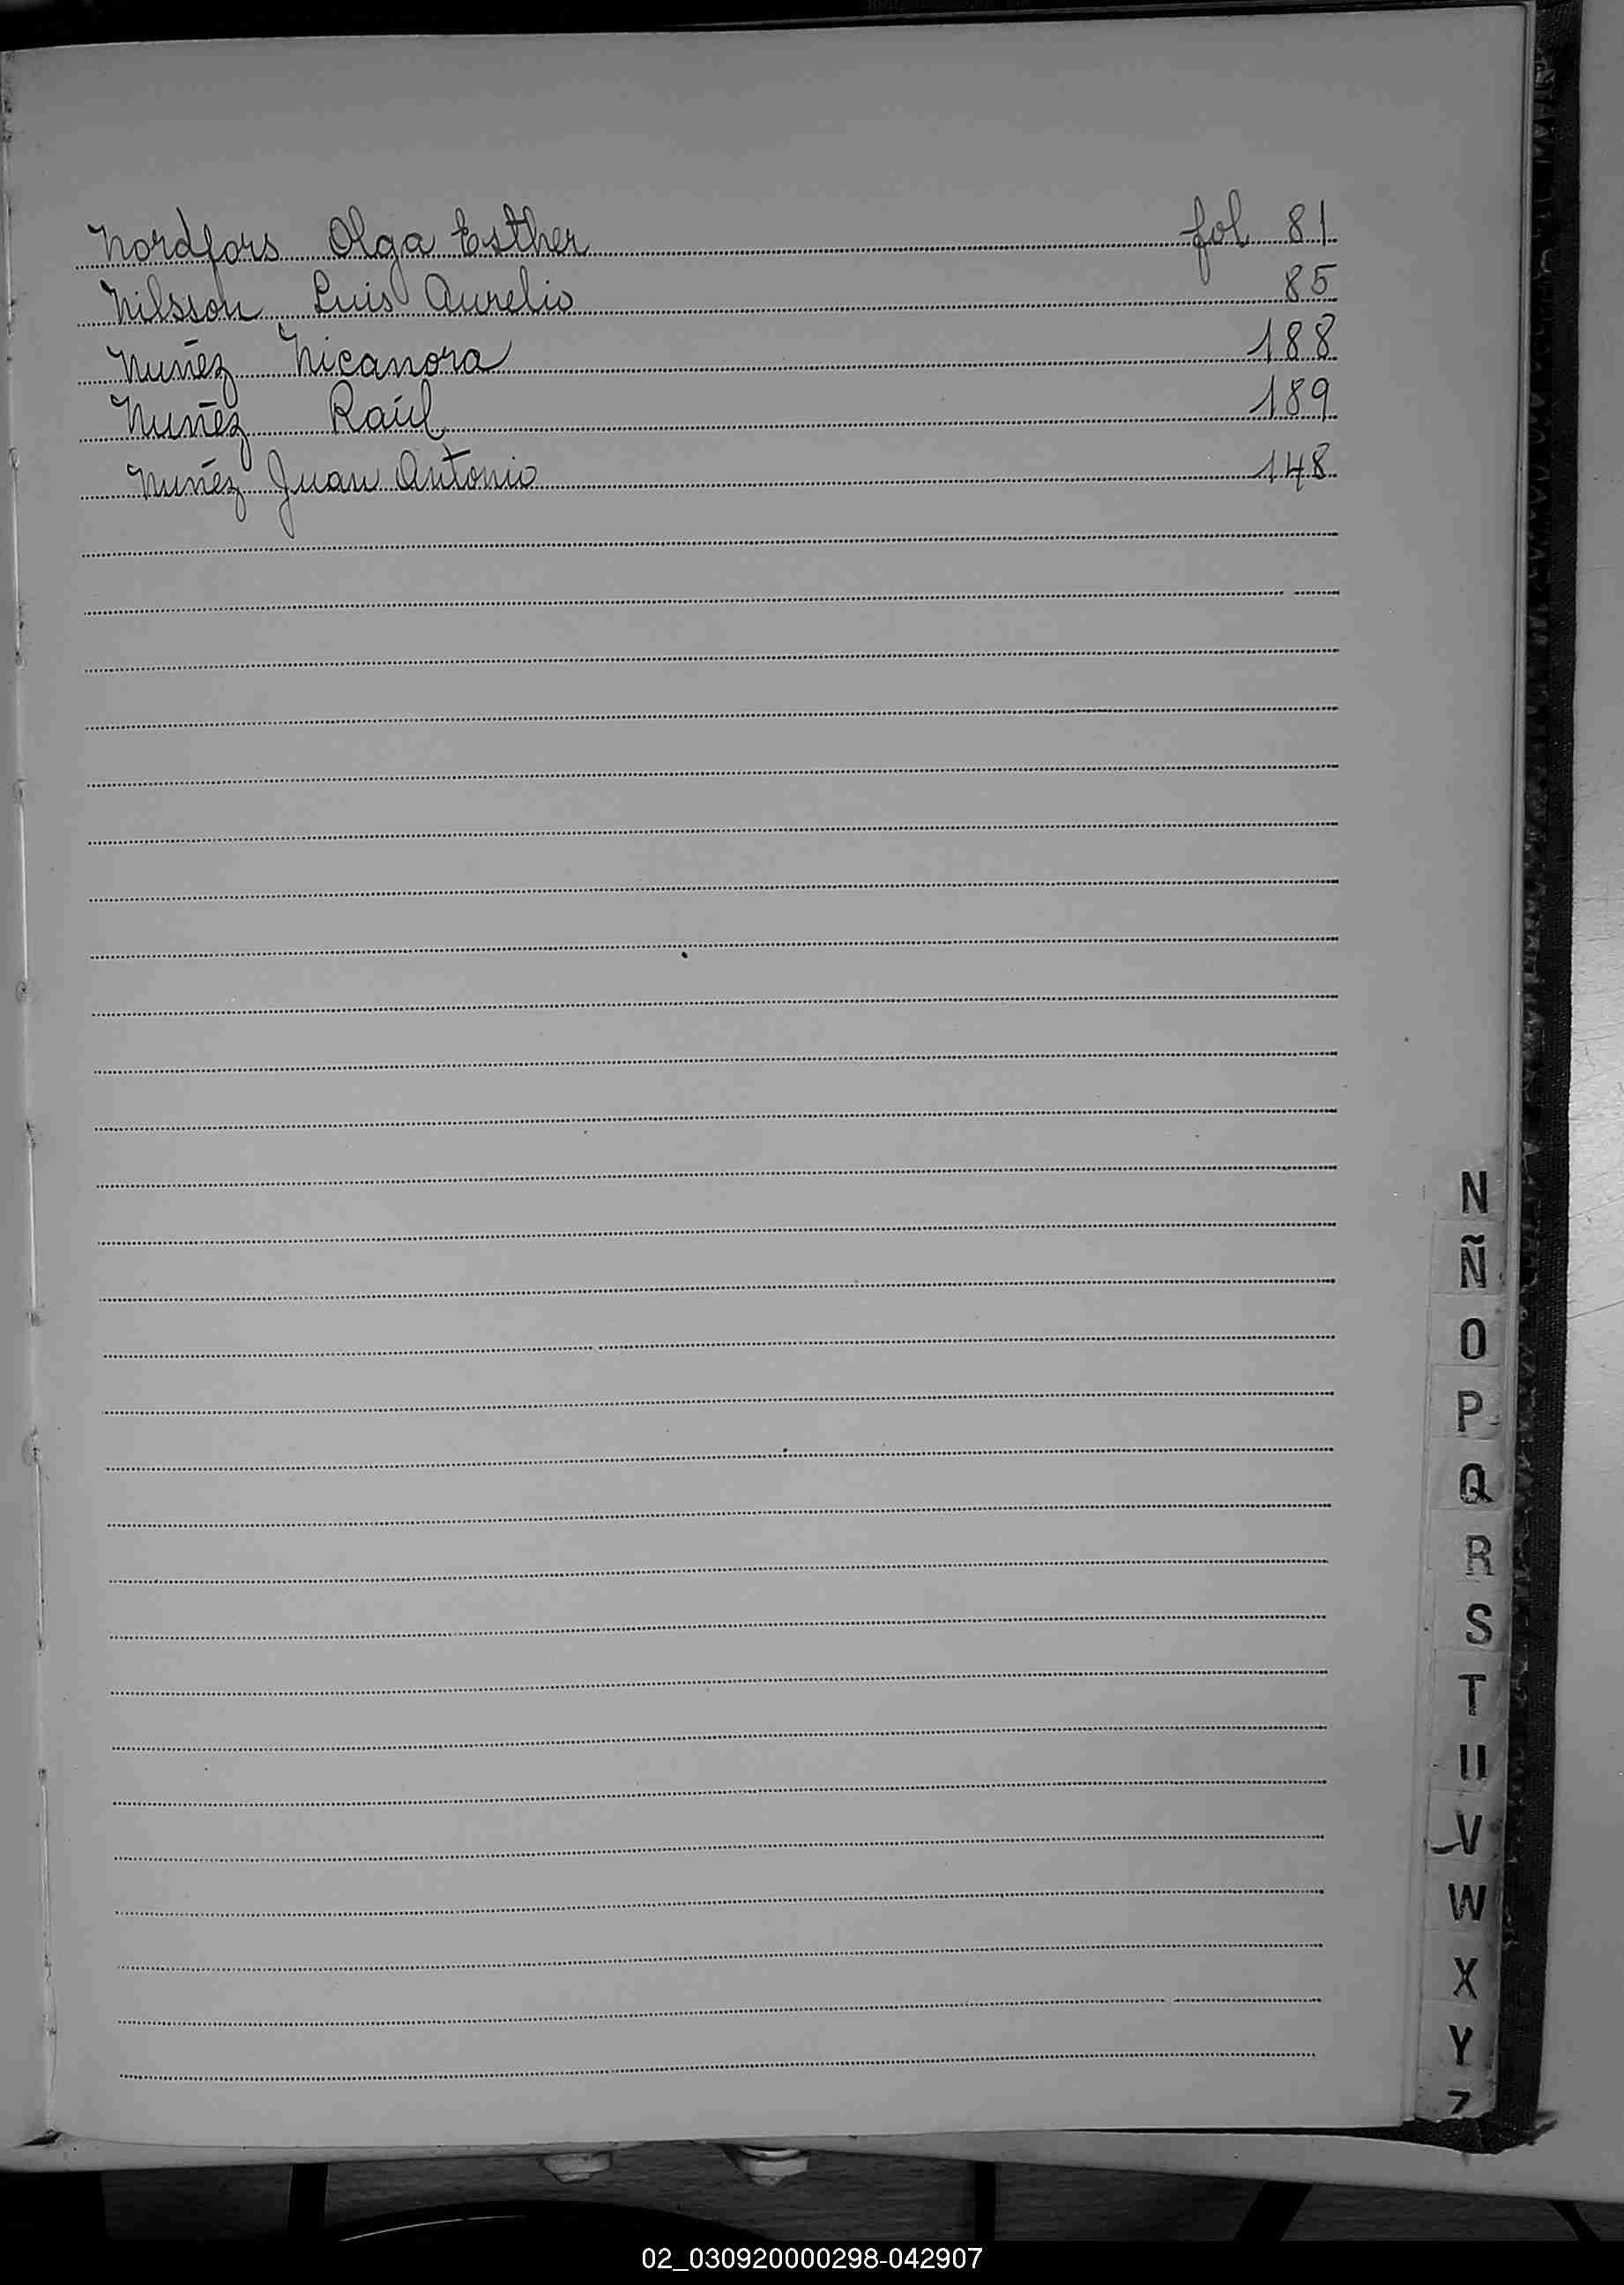 Nordfors Olga Esther fol 81
Nilsson Luis Aurelio 85
Nuñez Nicanora 188
Nuñez Raúl 189
Nuñez Juan Antonio 148
N
Ñ
O
P
Q
R
S
T
U
V
W
X
Y
Z
02_030920000298-042907